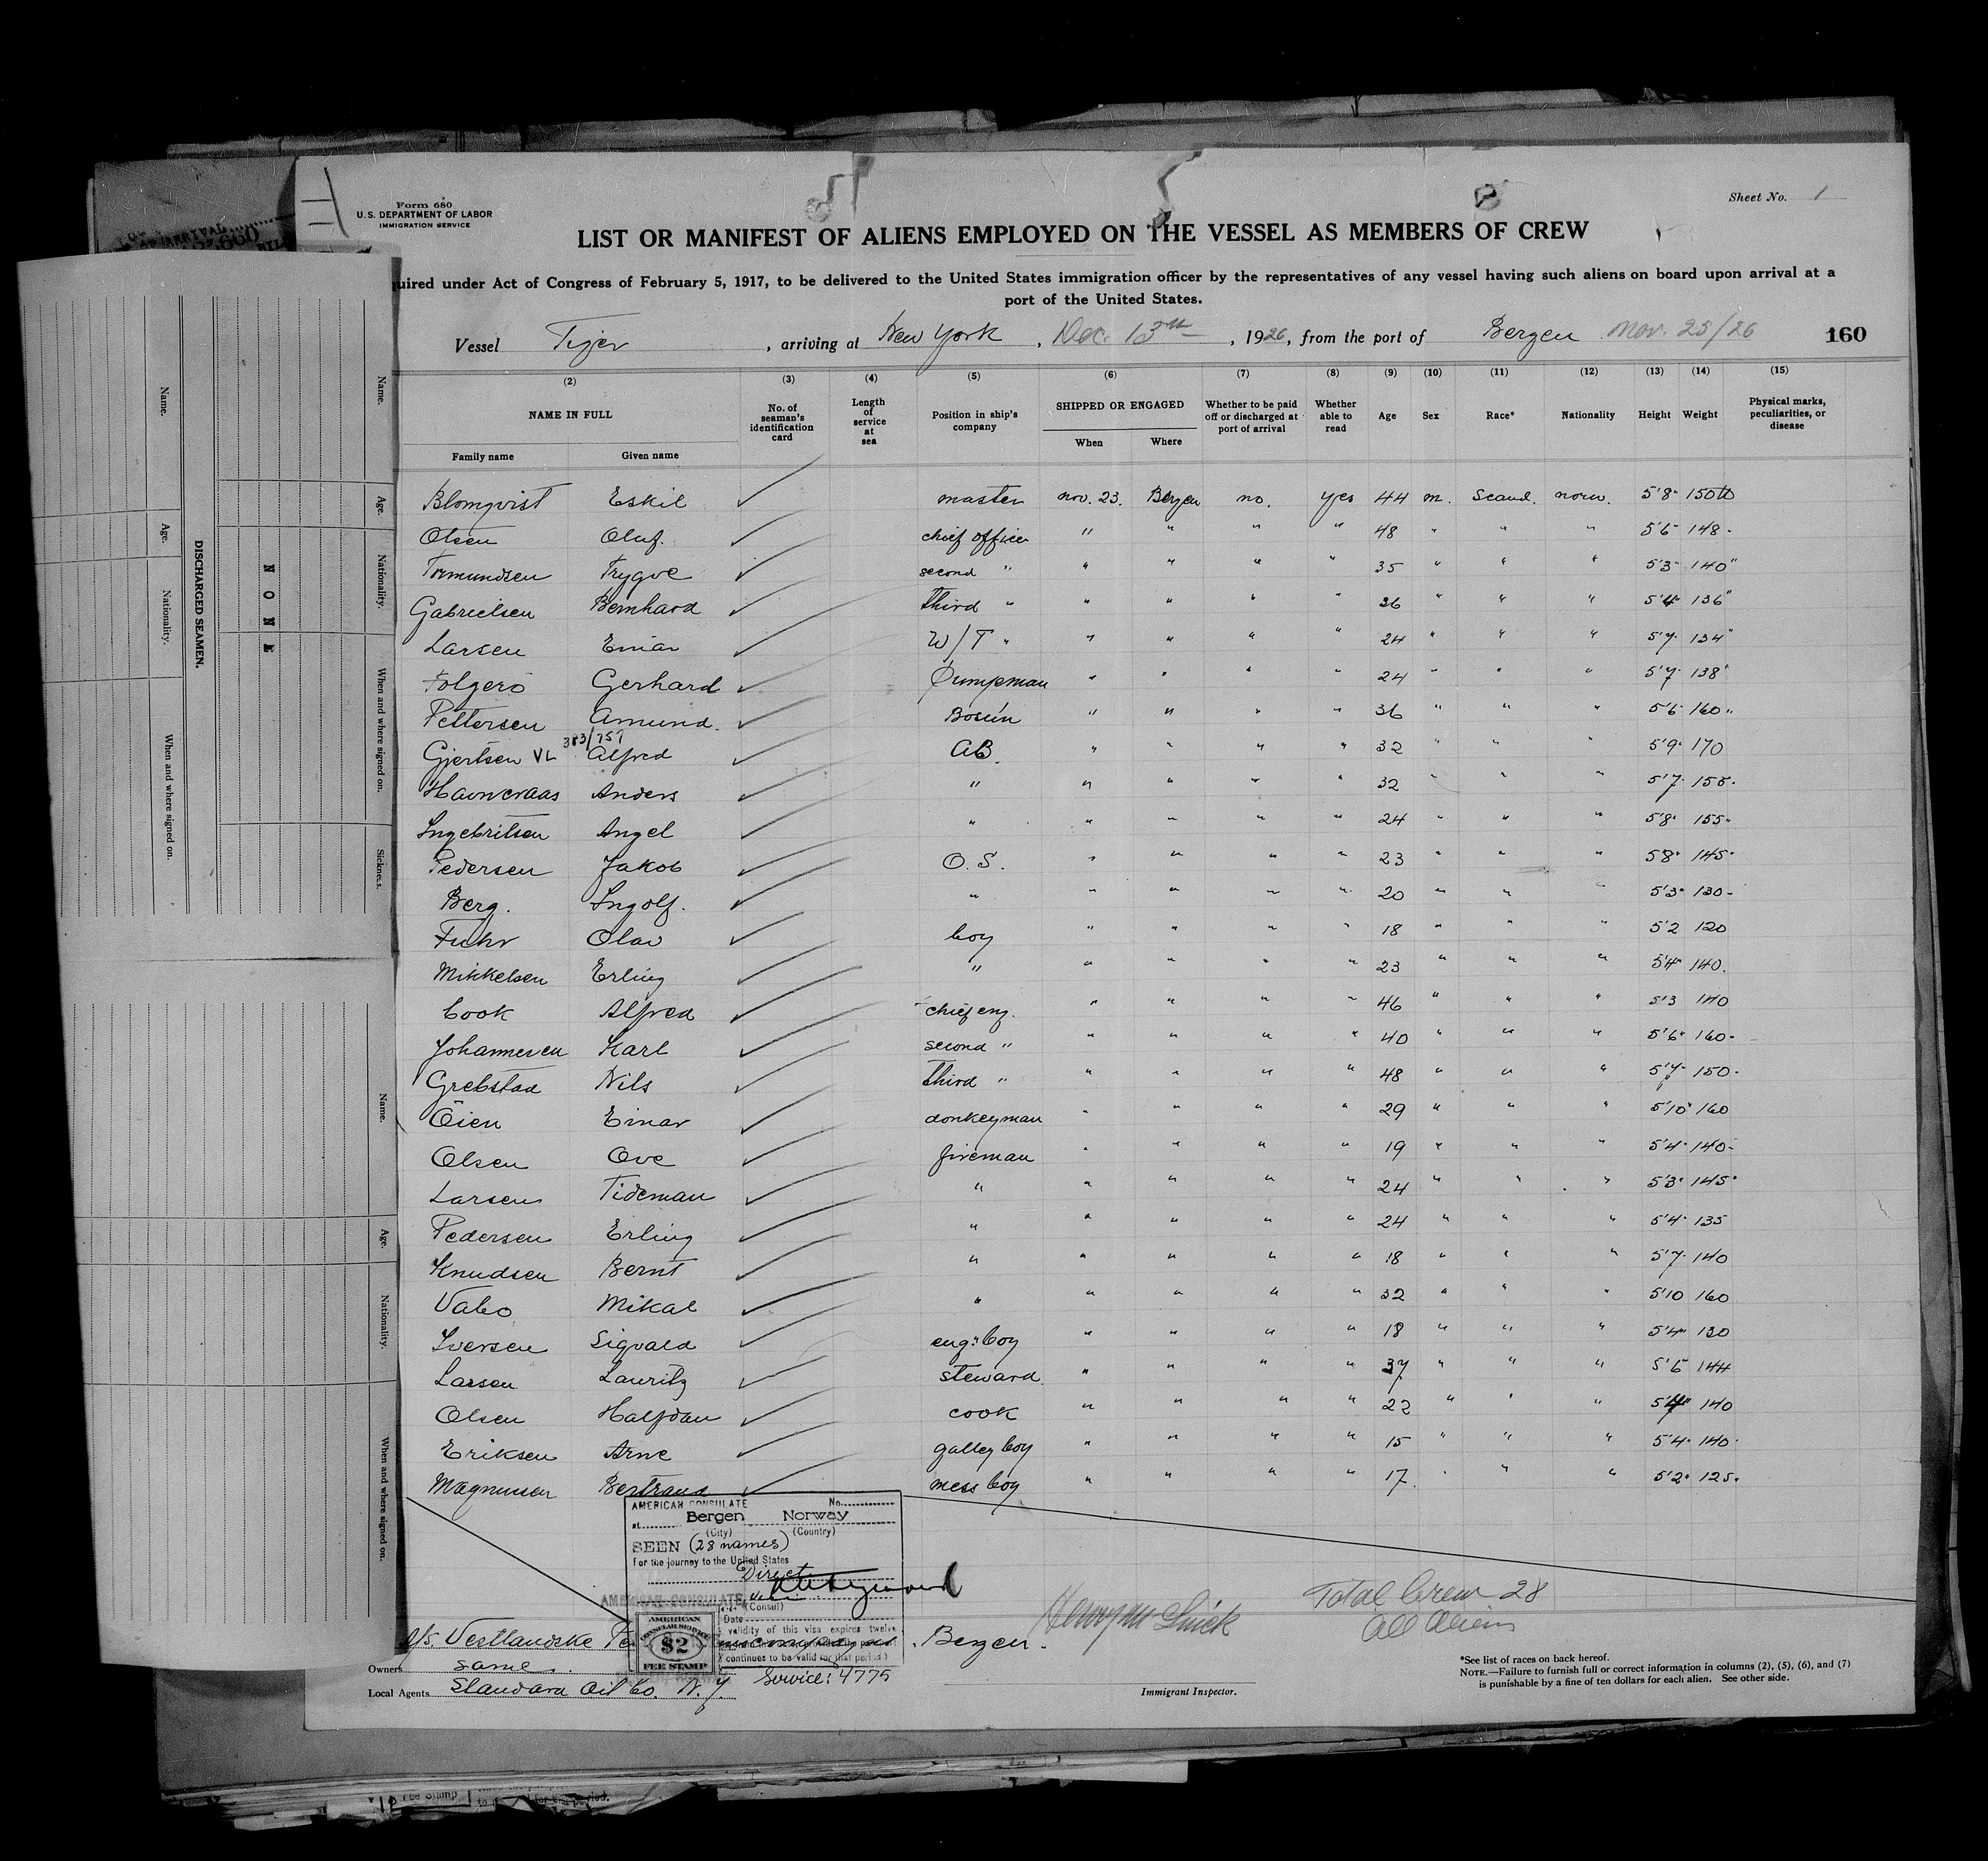 Form 680
U.S. DEPARTMENT OF LABOR
IMMIGRATION SERVICE
Sheet No. 1
LIST OR MANIFEST OF ALIENS EMPLOYED ON THE VESSEL AS MEMBERS OF CREW
quired under Act of Congress of February 5, 1917, to be delivered to the United States immigration officer by the representatives of any vessel having such aliens on board upon arrival at a
port of the United States.
Vessel Tiger, arriving at New York, Dec. 13th, 1926, from the port of Bergen Nov. 25/26 160
(2) (3) (4) (5) (6) (7) (8) (9) (10) (11) (12) (13) (14) (15)
NAME IN FULL No. of seaman's identification card Length of service at sea Position in ship's company SHIPPED OR ENGAGED Whether to be paid off or discharged at port of arrival Whether able to read Age Sex Race* Nationality Height Weight Physical marks, peculiarities, or disease
Family name Given name When Where
Blomqvist Eskil ✓ master nov. 23. Bergen no. yes 44 m. Scand. norw. 5'8" 150
Olsen Oluf. ✓ chief officer " " " " 48 " " " 5'6" 148
Tormundsen Trygve ✓ second " " " " " 35 " " " 5'3" 140"
Gabrielsen Bernhard ✓ Third " " " " " 26 " " " 5'4" 136"
Larsen Einar ✓ W/T " " " " " 24 " " " 5'7" 134"
Folgerö Gerhard ✓ Pumpman " " " " 24 " " " 5'7" 138"
Pettersen Amund. ✓ Bosun " " " " 36 " " " 5'6" 160 "
383/757
Gjertsen VL Alfred ✓ AB. " " " " 32 " " " 5'9" 170
Anders ✓ " " " " " 32 " " " 5'7" 155
Ingebritsen Angel ✓ " " " " " 24 " " " 5'8" 155
Pedersen Jakob ✓ O.S. " " " " 23 " " " 5'8" 145
Berg. Ingolf. ✓ " " " " " 20 " " " 5'3" 130
Fuhr Olav ✓ boy " " " " 18 " " " 5'2 120
Mikkelsen Erling ✓ " " " " " 23 " " " 5'4" 140.
Cook Alfred ✓ chief eng. " " " " 46 " " " 5'3 140
Johannesen Karl ✓ second " " " " " 40 " " " 5'6" 160
Grebstad Nils ✓ Third " " " " " 48 " " " 5'7" 150
Öien Einar ✓ donkeyman " " " " 29 " " " 5'10" 160
Olsen Ove ✓ fireman " " " " 19 " " " 5'4" 140
Larsen Tideman ✓ " " " " " 24 " " " 5'3" 145
Pedersen Erling ✓ " " " " " 24 " " " 5'4" 135
Knudsen Bernt ✓ " " " " " 18 " " " 5'7" 140
Vabo Mikal ✓ " " " " " 32 " " " 5'10 160
Iversen Sigvald ✓ eng. boy " " " " 18 " " " 5'4" 130
Larsen Lauritz ✓ steward. " " " " 37 " " " 5'6 144
Olsen Halfdan ✓ cook " " " " 22 " " " 5'4" 140
Eriksen Arne ✓ galley boy " " " " 15 " " " 5'4" 140
Magnussen Bertrand ✓ mess boy " " " " 17. " " " 5'2" 125
AMERICAN CONSULATE No.
at Bergen Norway
(City) (Country)
SEEN (28 names)
For the journey to the United States
Direct
AMERICAN CONSULATE
(Consul)
Date
validity of this visa expires twelve
continues to be valid for that period)
AMERICAN
CONSULAR SERVICE
$2
FEE STAMP
Service: 4775
Total Crew 28
All Aliens
A/S. Vestlandske Bergen.
Owners same.
Local Agents Standard Oil Co. N.Y.
Immigrant Inspector.
*See list of races on back hereof.
NOTE.—Failure to furnish full or correct information in columns (2), (5), (6), and (7)
is punishable by a fine of ten dollars for each alien. See other side.
DISCHARGED SEAMEN.
NONE
Name. Age. Nationality. When and where signed on.
Name. Age. Nationality. When and where signed on. Sickness.
Name. Age. Nationality. When and where signed on.